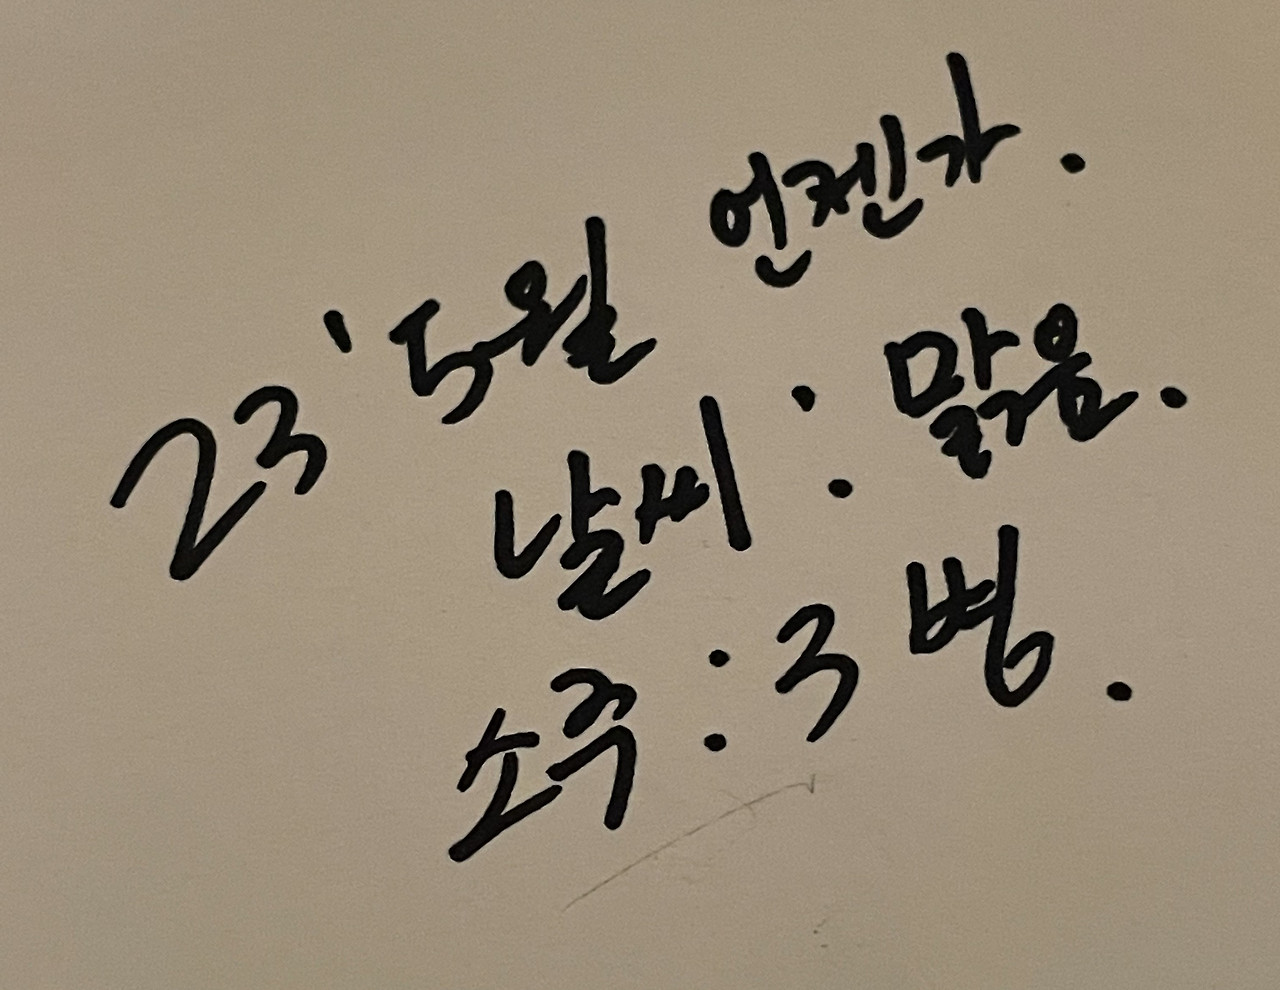 23' 5월 언젠가.
날씨 : 맑음.
소주 : 3병.